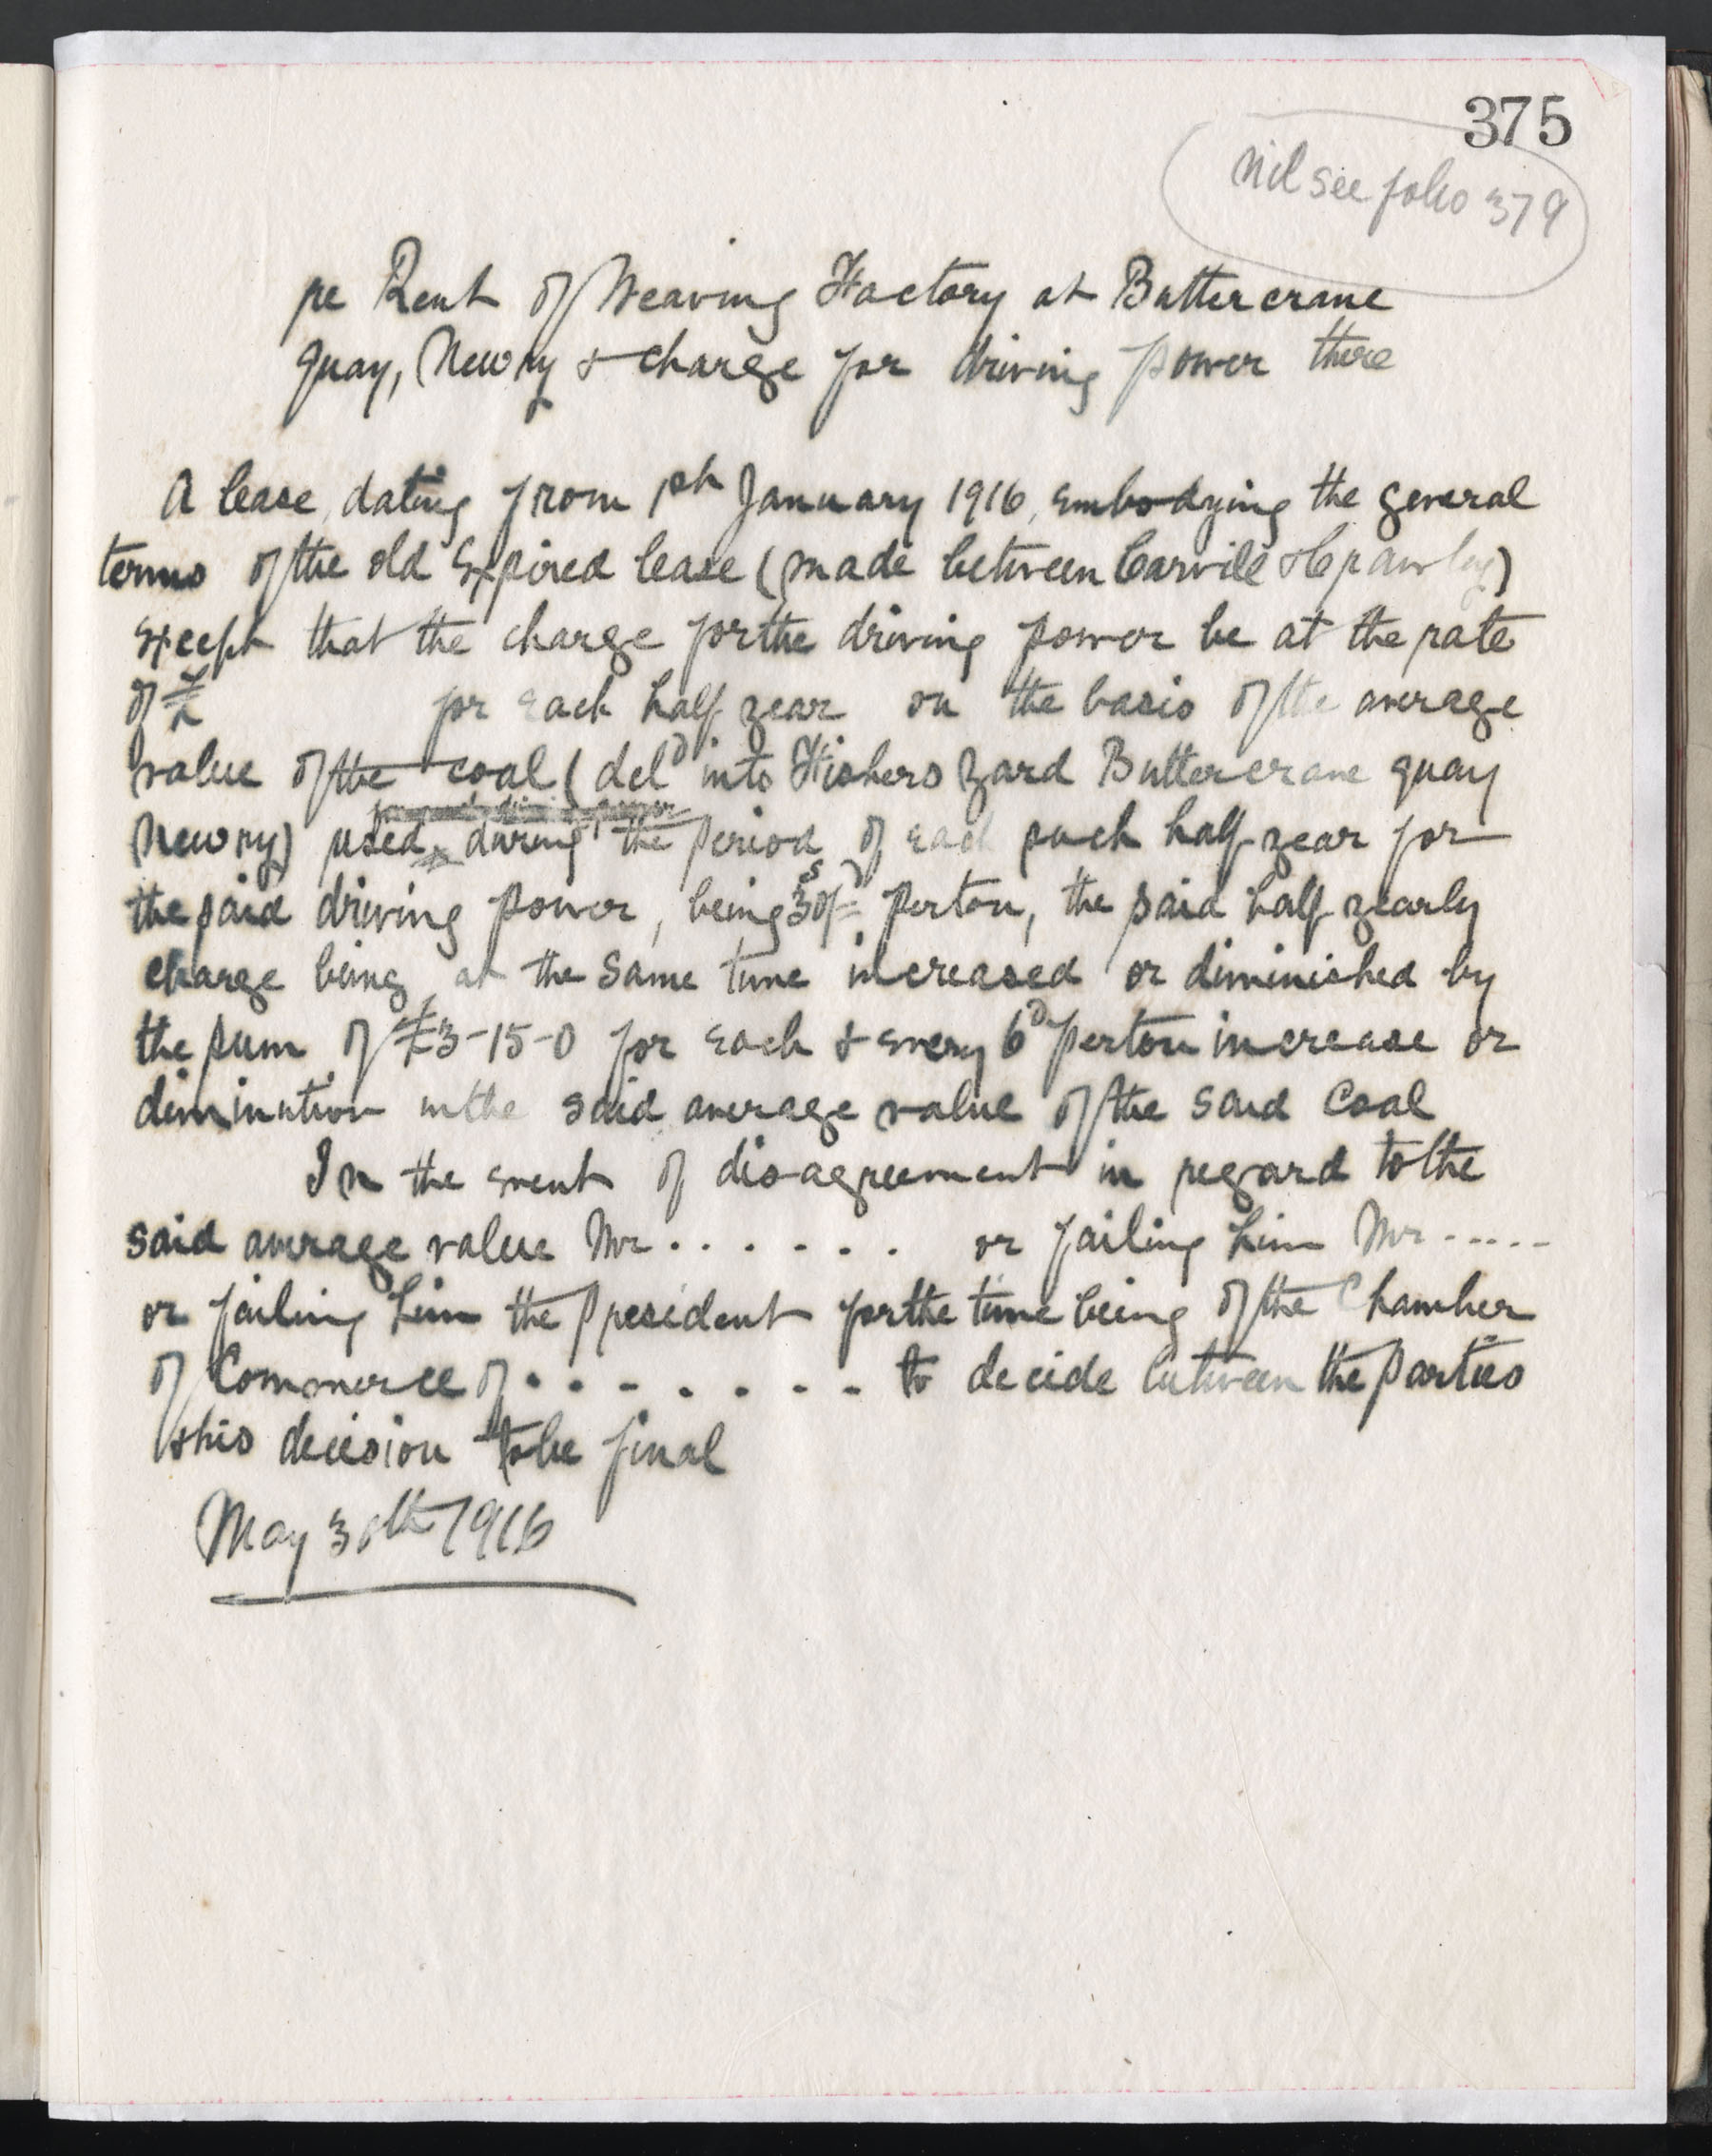 375
nil see folio 379
re Rent of Weaving Factory at Buttercrane
quay, Newry & charge for driving power there
A lease, dating from 1st January 1916, embodying the general
terms of the old expired lease (made between Carvill &
except that the charge for the driving power be at the rate
of £ for each half year on the basis of the average
value of the coal (deld into Fishers Yard Buttercrane quay
Newry) used during the period of each such half year for
the said driving power, being 30s/= per ton, the said half yearly
charge being at the same time increased or diminished by
the sum of £3-15-0 for each & every 6d per ton increase or
diminution in the said average value of the said Coal
In the event of disagreement in regard to the
said average value Mr . . . . . . or failing him Mr -----
or failing him the President for the time being of the Chamber
of Commerce of . . . . . . . . to decide between the parties
& his decision to be final
May 30th 1916